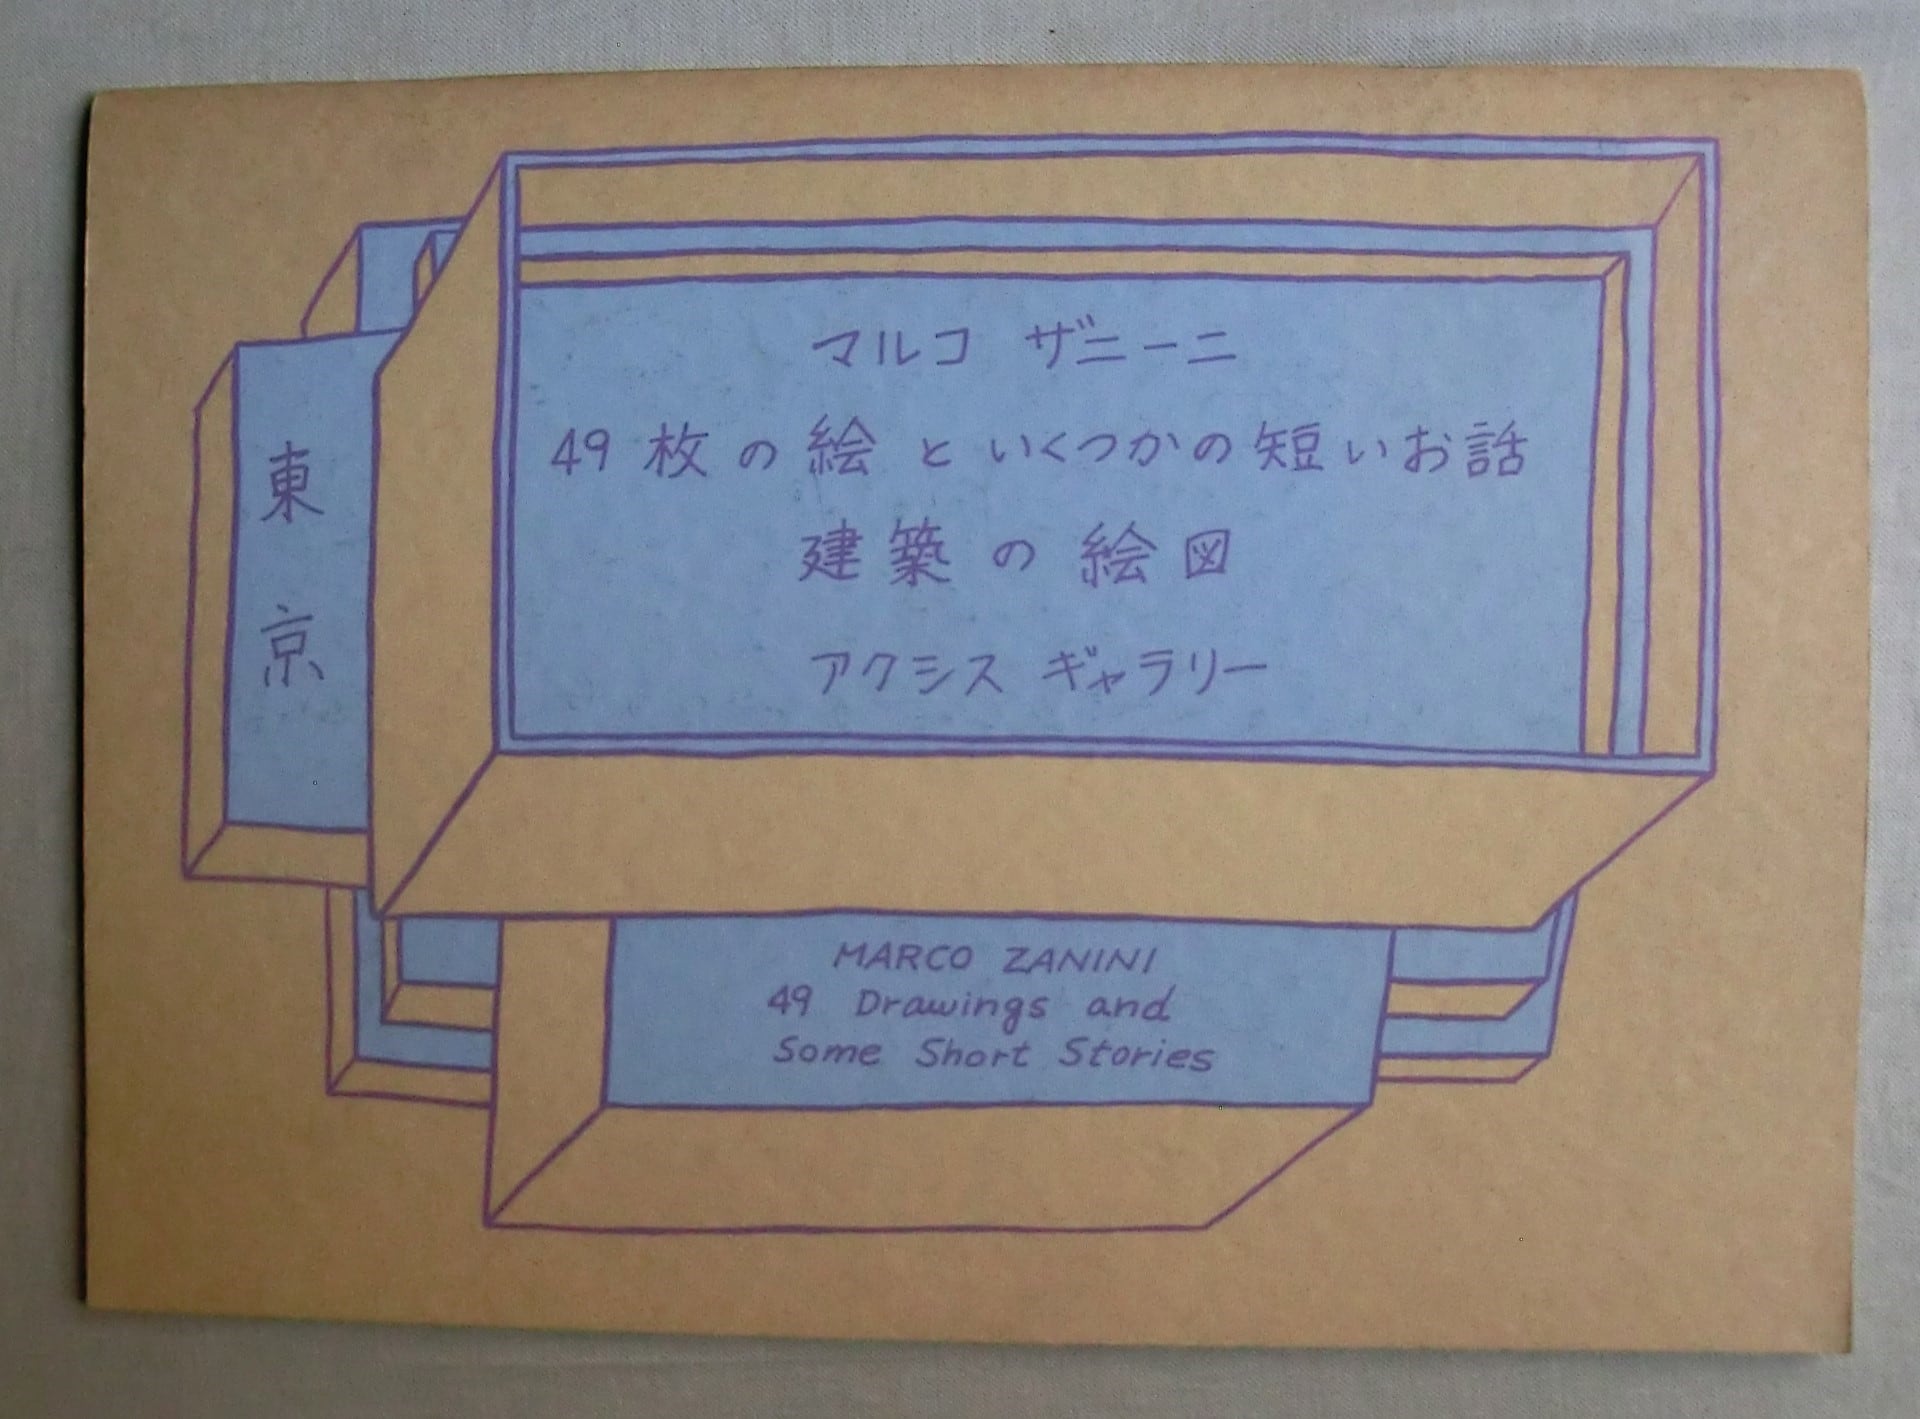 マルコ ザニーニ
49枚の絵といくつかの短いお話
建築の絵図
アクシス ギャラリー
東京
MARCO ZANINI
49 Drawings and
Some Short Stories